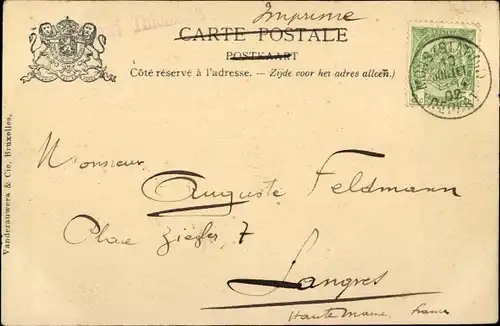 Imprime
CARTE POSTALE
POSTKAART
Côté réservé à l'adresse. — Zijde voor het adres alleen.)
MONS (STATION)
10
JUILLET
02
DEPART
Monsieur
Auguste Feldmann
Place Ziegler, 7
Langres
Haute Marne, France
Vanderauwera & Cie, Bruxelles.